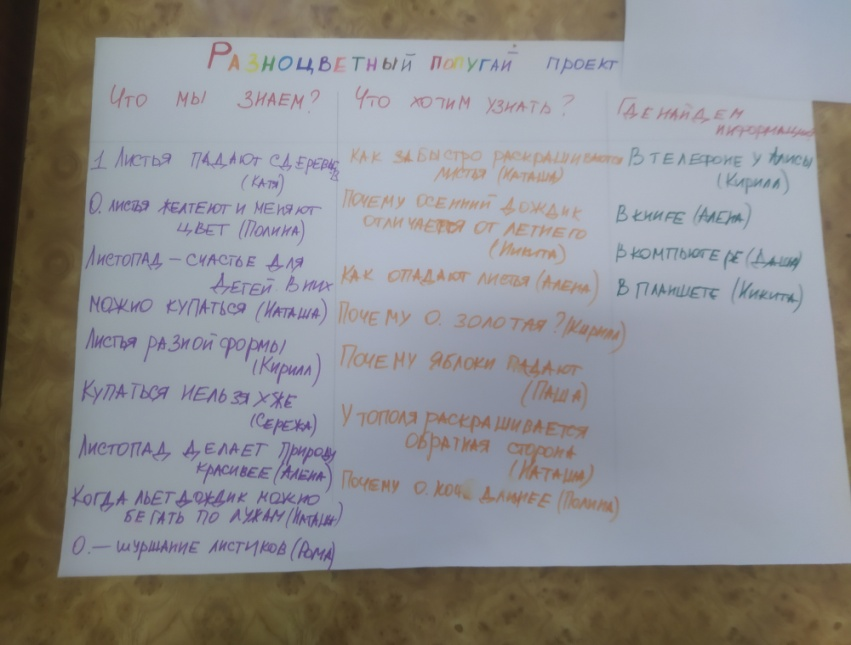 Разноцветный попугай проект
Что мы знаем?
1 Листья падают с деревьев
(Катя)
О. листья желтеют и меняют
цвет (Полина)
Листопад – счастье для
детей в них
можно купаться (Наташа)
Листья разной формы
(Кирилл)
Купаться нельзя уже
(Сережа)
Листопад делает природу
красивее (Алена)
Когда льет дождик можно
бегать по лужам (Наташа)
О. – шуршание листиков (Рома)
Что хотим узнать?
Как за быстро раскрашиваются
листья (Наташа)
Почему осенний дождик
отличается от летнего
(Никита)
Как опадают листья (Алена)
Почему О. золотая? (Кирилл)
Почему яблоки падают
(Паша)
У тополя раскрашивается
обратная сторона
(Наташа)
Почему О.
длинее (Полина)
Где найдем
информацию
В телефоне у Алисы
(Кирилл)
В книге (Алена)
В компьютере (Даша)
В планшете (Никита)